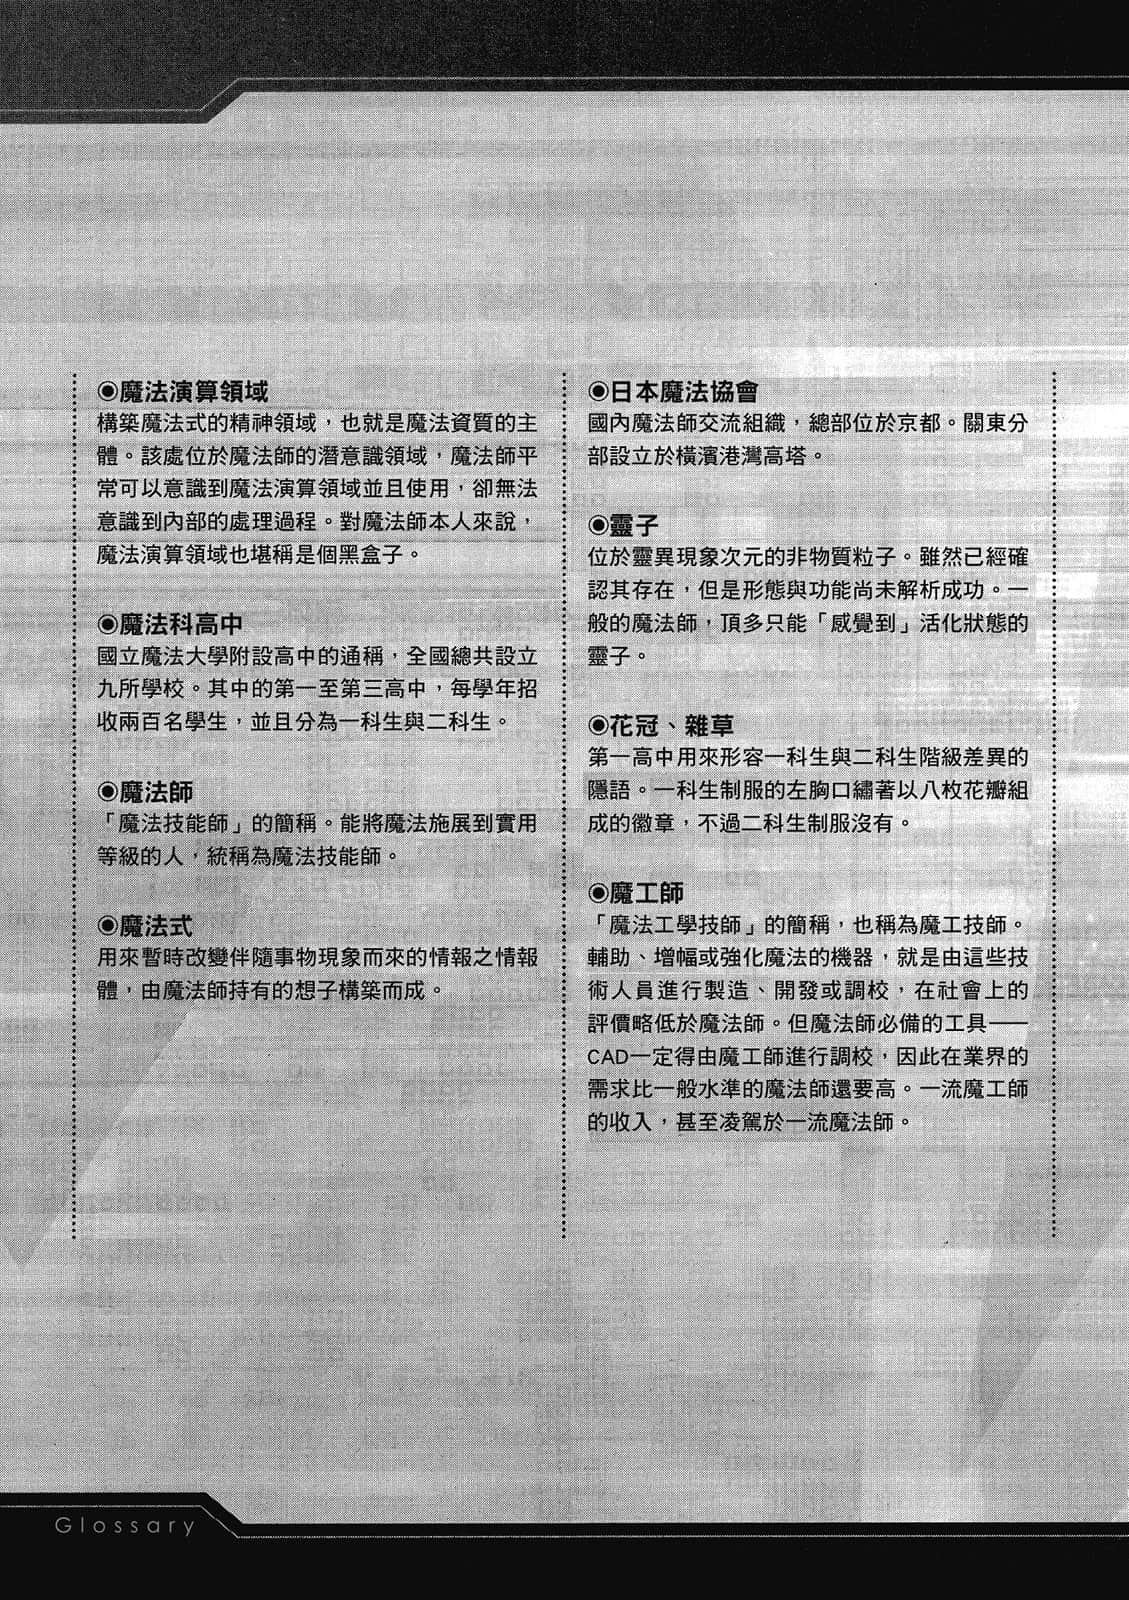 ◉魔法演算領域
構築魔法式的精神領域，也就是魔法資質的主
體。該處位於魔法師的潛意識領域，魔法師平
常可以意識到魔法演算領域並且使用，卻無法
意識到內部的處理過程。對魔法師本人來說，
魔法演算領域也堪稱是個黑盒子。
◉魔法科高中
國立魔法大學附設高中的通稱，全國總共設立
九所學校。其中的第一至第三高中，每學年招
收兩百名學生，並且分為一科生與二科生。
◉魔法師
「魔法技能師」的簡稱。能將魔法施展到實用
等級的人，統稱為魔法技能師。
◉魔法式
用來暫時改變伴隨事物現象而來的情報之情報
體，由魔法師持有的想子構築而成。
◉日本魔法協會
國內魔法師交流組織，總部位於京都。關東分
部設立於橫濱港灣高塔。
◉靈子
位於靈異現象次元的非物質粒子。雖然已經確
認其存在，但是形態與功能尚未解析成功。一
般的魔法師，頂多只能「感覺到」活化狀態的
靈子。
◉花冠、雜草
第一高中用來形容一科生與二科生階級差異的
隱語。一科生制服的左胸口繡著以八枚花瓣組
成的徽章，不過二科生制服沒有。
◉魔工師
「魔法工學技師」的簡稱，也稱為魔工技師。
輔助、增幅或強化魔法的機器，就是由這些技
術人員進行製造、開發或調校，在社會上的
評價略低於魔法師。但魔法師必備的工具——
CAD一定得由魔工師進行調校，因此在業界的
需求比一般水準的魔法師還要高。一流魔工師
的收入，甚至凌駕於一流魔法師。
Glossary